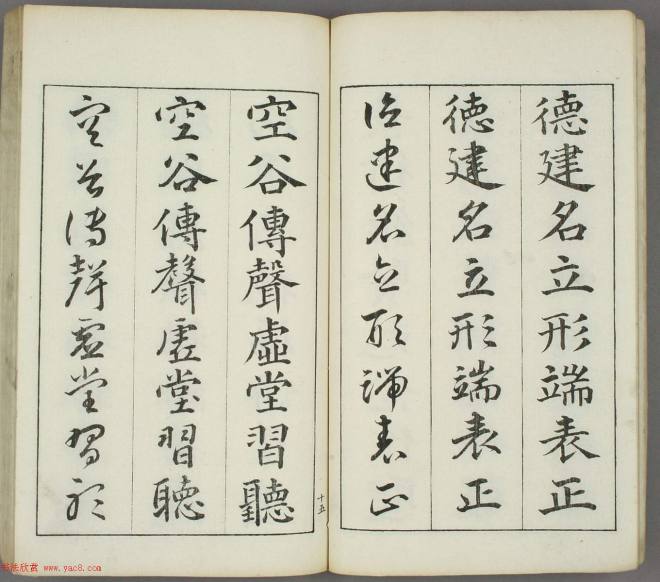 德建名立形端表正
德建名立形端表正
德建名立形端表正
十五
空谷傳聲虛堂習聽
空谷傳聲虛堂習聽
空谷傳聲虛堂習聽
书法欣赏 www.yac8.com